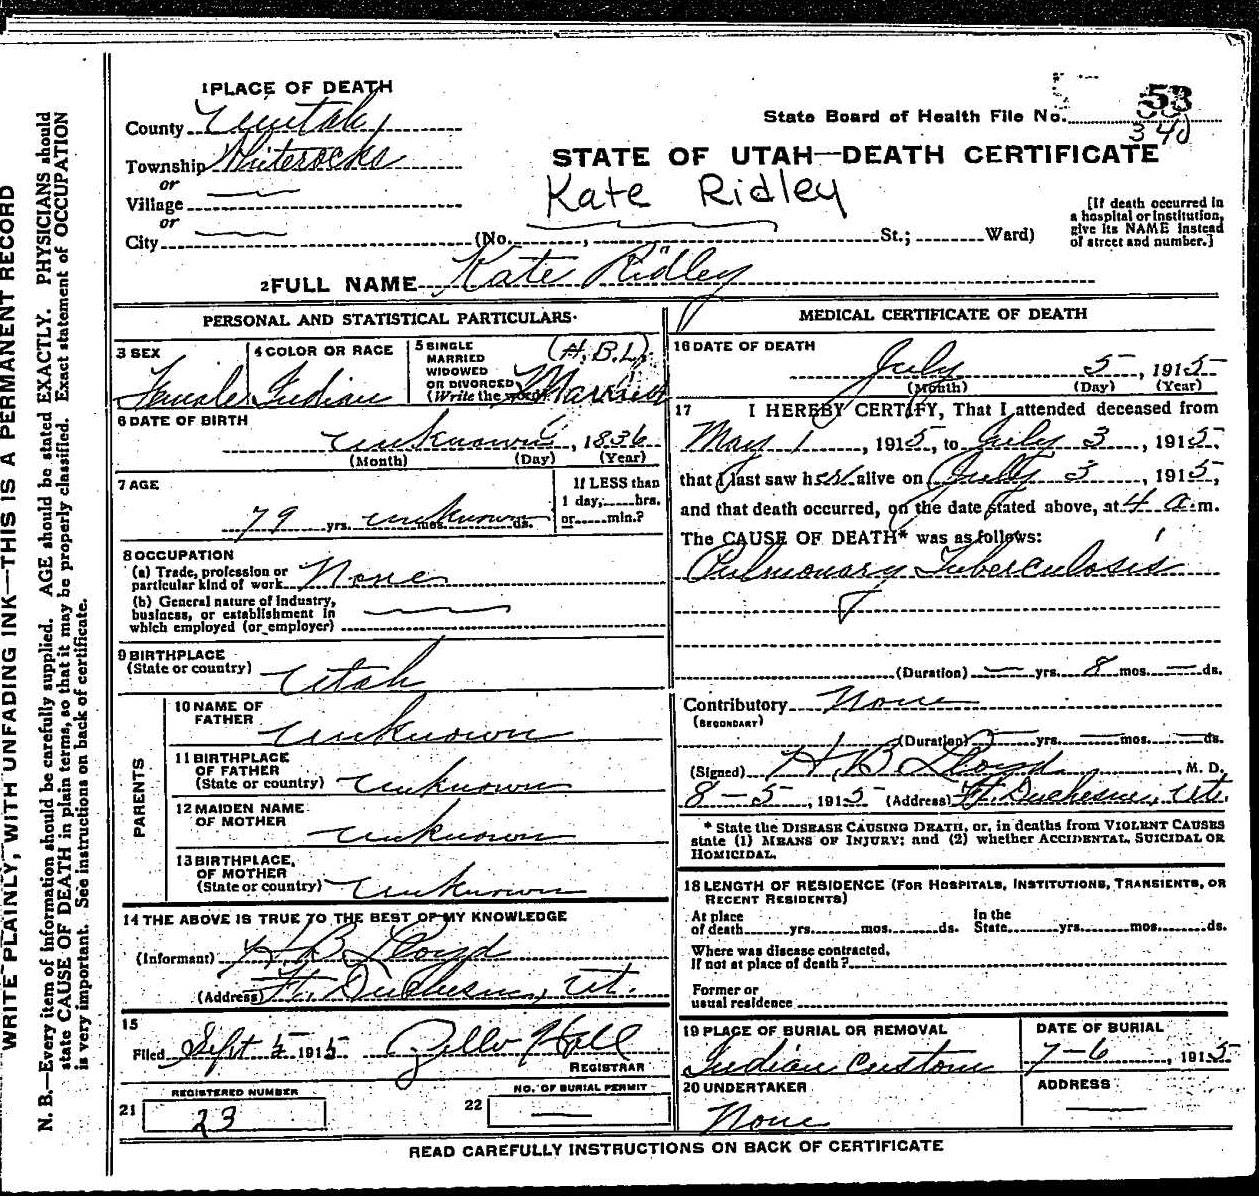 1 PLACE OF DEATH
County Uintah
Township Whiterocks
or
Village
or
City
State Board of Health File No. 53
340
STATE OF UTAH—DEATH CERTIFICATE
Kate Ridley
[If death occurred in
a hospital or institution,
give its NAME instead
of street and number.]
(No. , St.; Ward)
2 FULL NAME Kate Ridley
PERSONAL AND STATISTICAL PARTICULARS
3 SEX
Female
4 COLOR OR RACE
Indian
5 SINGLE
MARRIED
WIDOWED
OR DIVORCED
(Write the word)
(H.B.L.)
Married
6 DATE OF BIRTH
unknown, 1836
(Month) (Day) (Year)
7 AGE
79 yrs. unknown mos. ds.
If LESS than
1 day, hrs.
or min.?
8 OCCUPATION
(a) Trade, profession or
particular kind of work None
(b) General nature of industry,
business, or establishment in
which employed (or employer)
9 BIRTHPLACE
(State or country) Utah
PARENTS
10 NAME OF
FATHER unknown
11 BIRTHPLACE
OF FATHER
(State or country) unknown
12 MAIDEN NAME
OF MOTHER unknown
13 BIRTHPLACE,
OF MOTHER
(State or country) unknown
14 THE ABOVE IS TRUE TO THE BEST OF MY KNOWLEDGE
(Informant) H.B. Lloyd
(Address) Ft. Duchesne, Ut.
15
Filed Sept 5 1915 Zella Hall
REGISTRAR
REGISTERED NUMBER
21 23
NO. OF BURIAL PERMIT
22
MEDICAL CERTIFICATE OF DEATH
16 DATE OF DEATH
July 5, 1915
(Month) (Day) (Year)
17 I HEREBY CERTIFY, That I attended deceased from
May 1, 1915, to July 3, 1915
that I last saw her alive on July 3, 1915,
and that death occurred, on the date stated above, at 4 a.m.
The CAUSE OF DEATH* was as follows:
Pulmonary Tuberculosis
(Duration) — yrs. 8 mos. — ds.
Contributory None
(SECONDARY)
(Duration) — yrs. — mos. — ds.
(Signed) H.B. Lloyd, M. D.
8-5, 1915 (Address) Ft. Duchesne, Ut.
* State the DISEASE CAUSING DEATH, or, in deaths from VIOLENT CAUSES
state (1) MEANS OF INJURY; and (2) whether ACCIDENTAL, SUICIDAL OR
HOMICIDAL.
18 LENGTH OF RESIDENCE (FOR HOSPITALS, INSTITUTIONS, TRANSIENTS, OR
RECENT RESIDENTS)
At place
of death yrs. mos. ds.
In the
State yrs. mos. ds.
Where was disease contracted,
if not at place of death?
Former or
usual residence
19 PLACE OF BURIAL OR REMOVAL
Indian Custom
DATE OF BURIAL
7-6, 1915
20 UNDERTAKER
None
ADDRESS
READ CAREFULLY INSTRUCTIONS ON BACK OF CERTIFICATE
WRITE PLAINLY, WITH UNFADING INK—THIS IS A PERMANENT RECORD
N. B.—Every item of information should be carefully supplied. AGE should be stated EXACTLY. PHYSICIANS should
state CAUSE OF DEATH in plain terms, so that it may be properly classified. Exact statement of OCCUPATION
is very important. See instructions on back of certificate.